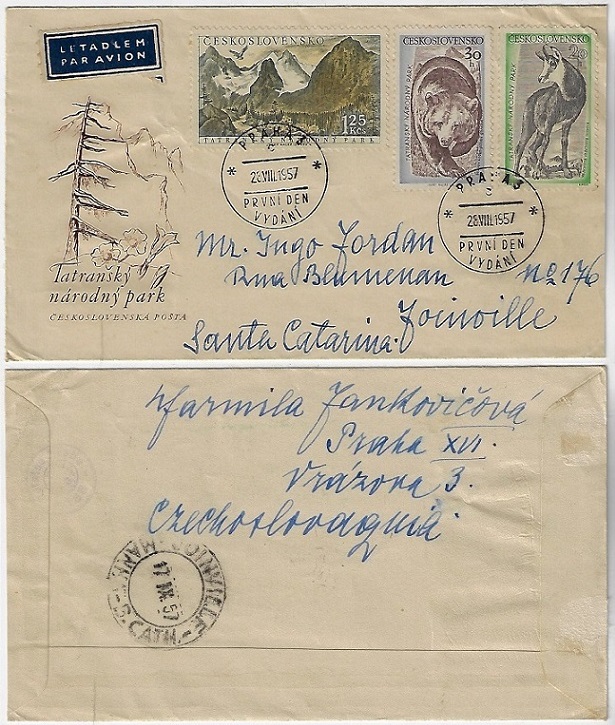 LETADLEM
PAR AVION
ČESKOSLOVENSKO
1.25
Kčs
TATRANSKÝ NÁRODNÝ PARK
ČESKOSLOVENSKO
30
h
TATRANSKÝ NÁRODNÝ PARK
ČESKOSLOVENSKO
20
TATRANSKÝ NÁRODNÝ PARK
PRAHA 3
28.VIII.1957
PRVNÍ DEN
VYDÁNÍ
PRAHA 3
28.VIII.1957
PRVNÍ DEN
VYDÁNÍ
Tatranský
národný park
ČESKOSLOVENSKÁ POŠTA
Mr. Ingo Jordan
Rua Blumenau No 176
Joinville
Santa Catarina.
Jarmila Jankovičová
Praha XVI.
Vrázova 3.
Czechoslovaquia
JOINVILLE
17 IX. 57
S. CATH.